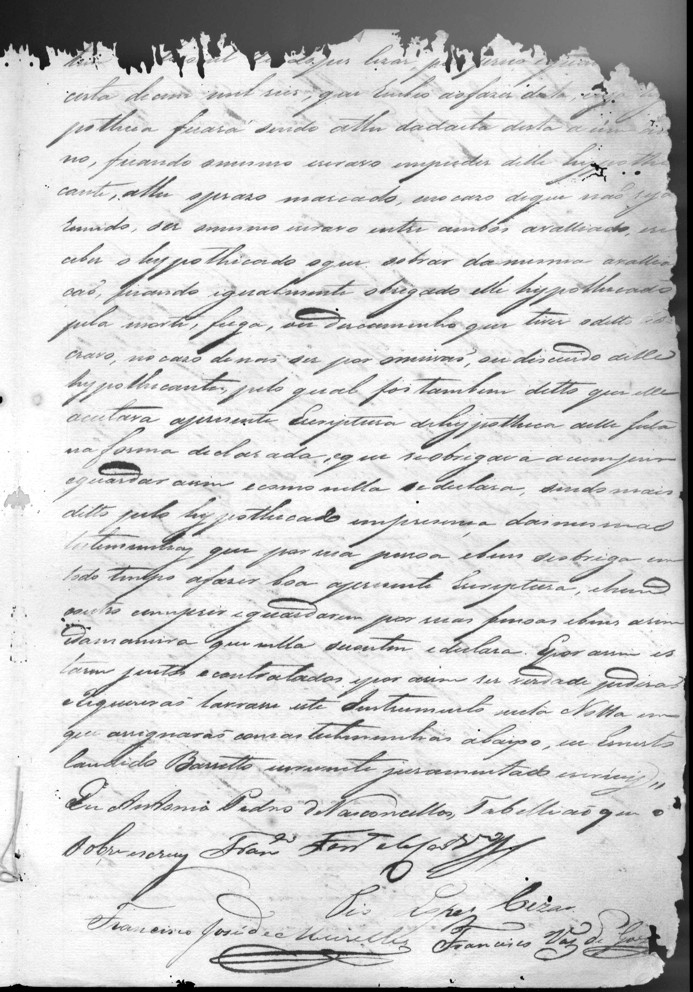 certa de cem mil reis, que houve ao fazer desta, cuja
potheca ficará sendo athe dada esta
no, ficando o mesmo escravo em poder delle hypothe
cante, athe o prazo marcado, e no cazo de que não seja
remido, ser o mesmo escravo entre ambos avalliado, re
ceber o hypothecado o que sobrar da mesma avallia
ção, ficando igualmente obrigado elle hypothecado
pela morte, fuga, ou descaminho que tiver o dello es
cravo, no cazo de não ser por omissão, ou discuido delle
hypothecante, pelo qual foi tambem ditto que elle
aceitava a presente Escriptura de hypotheca delle feita
na forma declarada, e que se obrigava a cumprir
e guardar assim e como nella se declara, sendo mais
ditto pelo hypothecado em presença das mesmas
testemunhas que por sua pessoa e bens se obriga em
todo tempo a fazer boa a presente Escriptura, e hum
outro cumprir e guardarem por suas pessoas e bens assim
e da maneira que nella se contem e declara. E por assim es
tarem justos e contratados e por assim ser verdade pedirão
e requererão lavrasse este Instrumento nesta Notta em
que assignarão com as testemunhas abaixo, eu Ernesto
Candido Barretto escrevente juramentado escrevy
Eu Antonio Pedro de Vasconcellos, Tabellião que o
sobrescrevy
Pio Lopes Cezar
Francisco José de Meirelles Francisco Vaz de